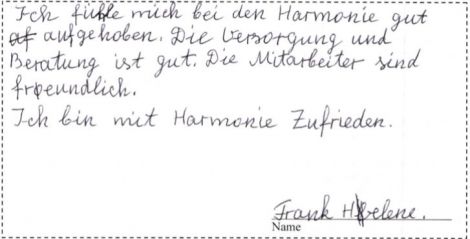 Ich fühle mich bei den Harmonie gut
aufgehoben. Die Versorgung und
Beratung ist gut. Die Mitarbeiter sind
freundlich.
Ich bin mit Harmonie Zufrieden.
Frank Helene.
Name